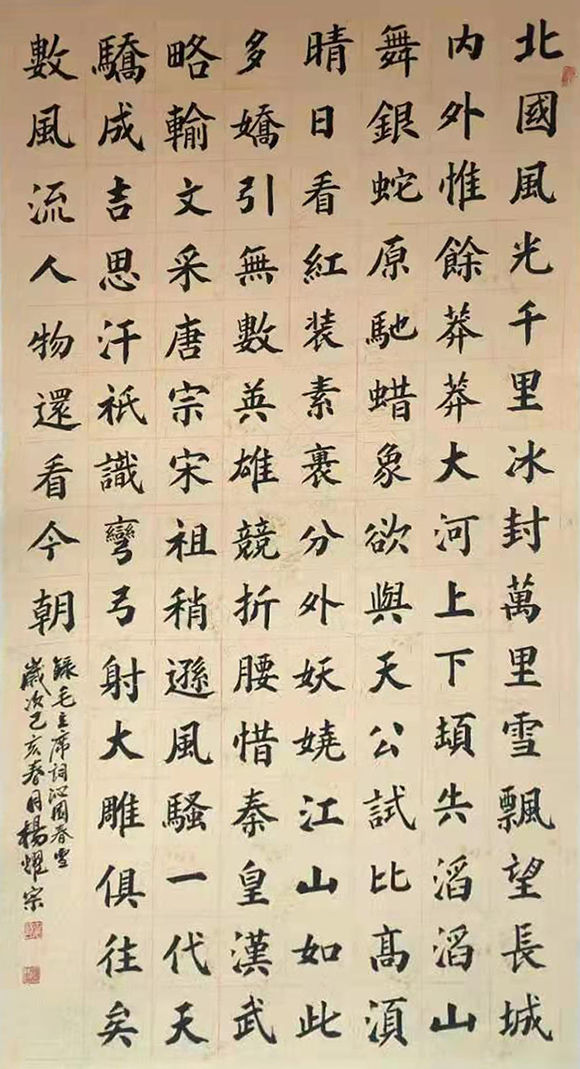 北國風光千里冰封萬里雪飄望長城
内外惟餘莽莽大河上下頓失滔滔山
舞銀蛇原馳蜡象欲與天公試比高須
晴日看紅装素裹分外妖嬈江山如此
多嬌引無數英雄競折腰惜秦皇漢武
略輸文采唐宗宋祖稍遜風騷一代天
驕成吉思汗祇識彎弓射大雕俱往矣
數風流人物還看今朝
録毛主席詞沁園春雪
歲次己亥春月楊耀宗